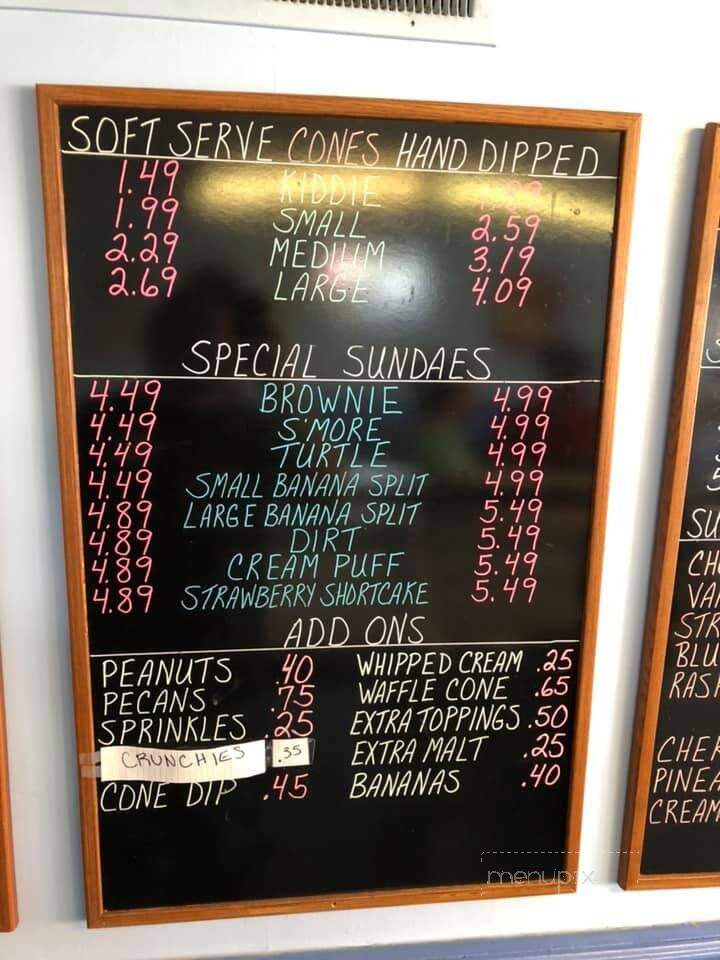 SOFT SERVE CONES HAND DIPPED
1.49 KIDDIE
1.99 SMALL 2.59
2.29 MEDIUM 3.19
2.69 LARGE 4.09
SPECIAL SUNDAES
4.49 BROWNIE 4.99
4.49 S'MORE 4.99
4.49 TURTLE 4.99
4.49 SMALL BANANA SPLIT 4.99
4.89 LARGE BANANA SPLIT 5.49
4.89 DIRT 5.49
4.89 CREAM PUFF 5.49
4.89 STRAWBERRY SHORTCAKE 5.49
ADD ONS
PEANUTS .40 WHIPPED CREAM .25
PECANS .75 WAFFLE CONE .65
SPRINKLES .25 EXTRA TOPPINGS .50
CRUNCHIES .35 EXTRA MALT .25
CONE DIP .45 BANANAS .40
menupix
SU
CH
VAN
STR
BLU
RASP
CHER
PINEA
CREAM